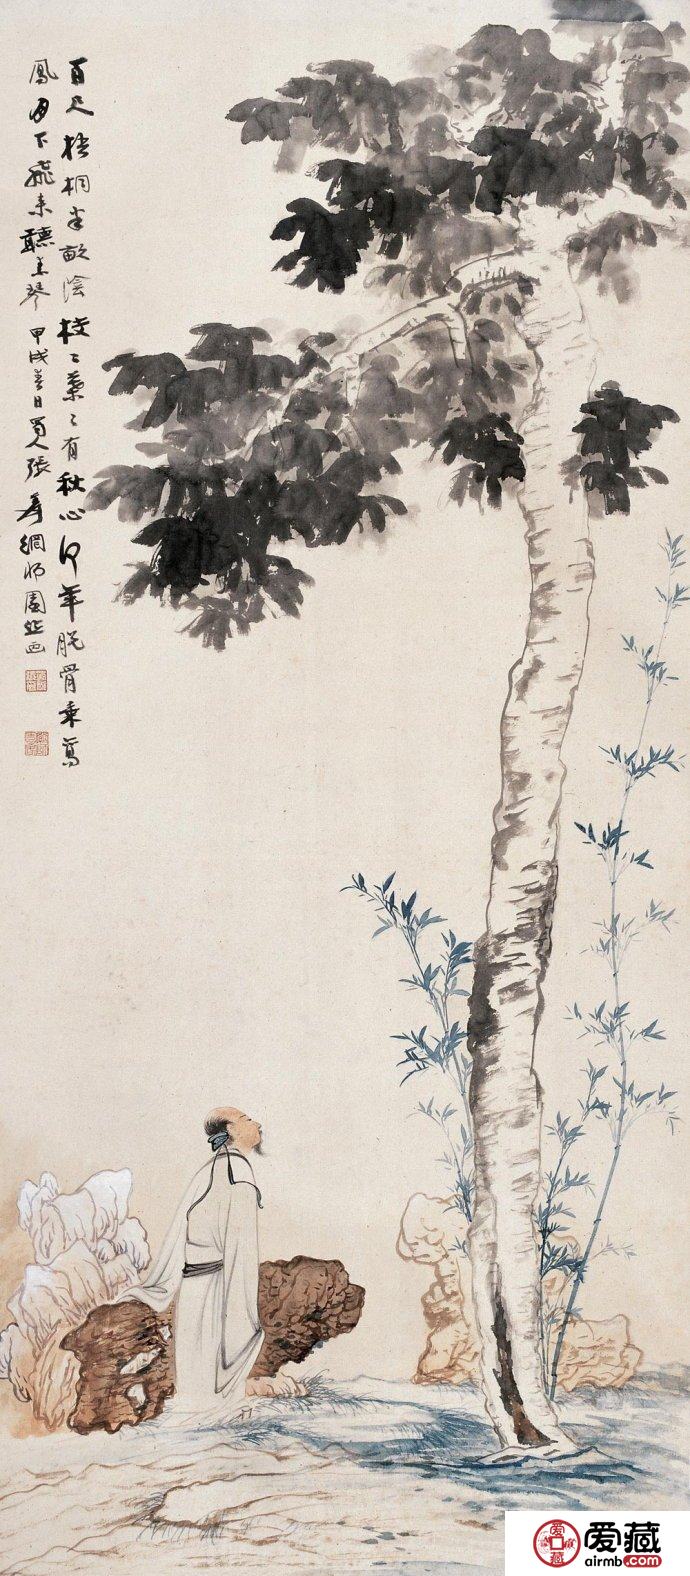 百尺梧桐半畝陰枝〻葉〻有秋心何年脫骨乘鸞
鳳月下飛來聽玉琴 甲戌春日蜀人張爰網師園並画
爱藏
airmb.com